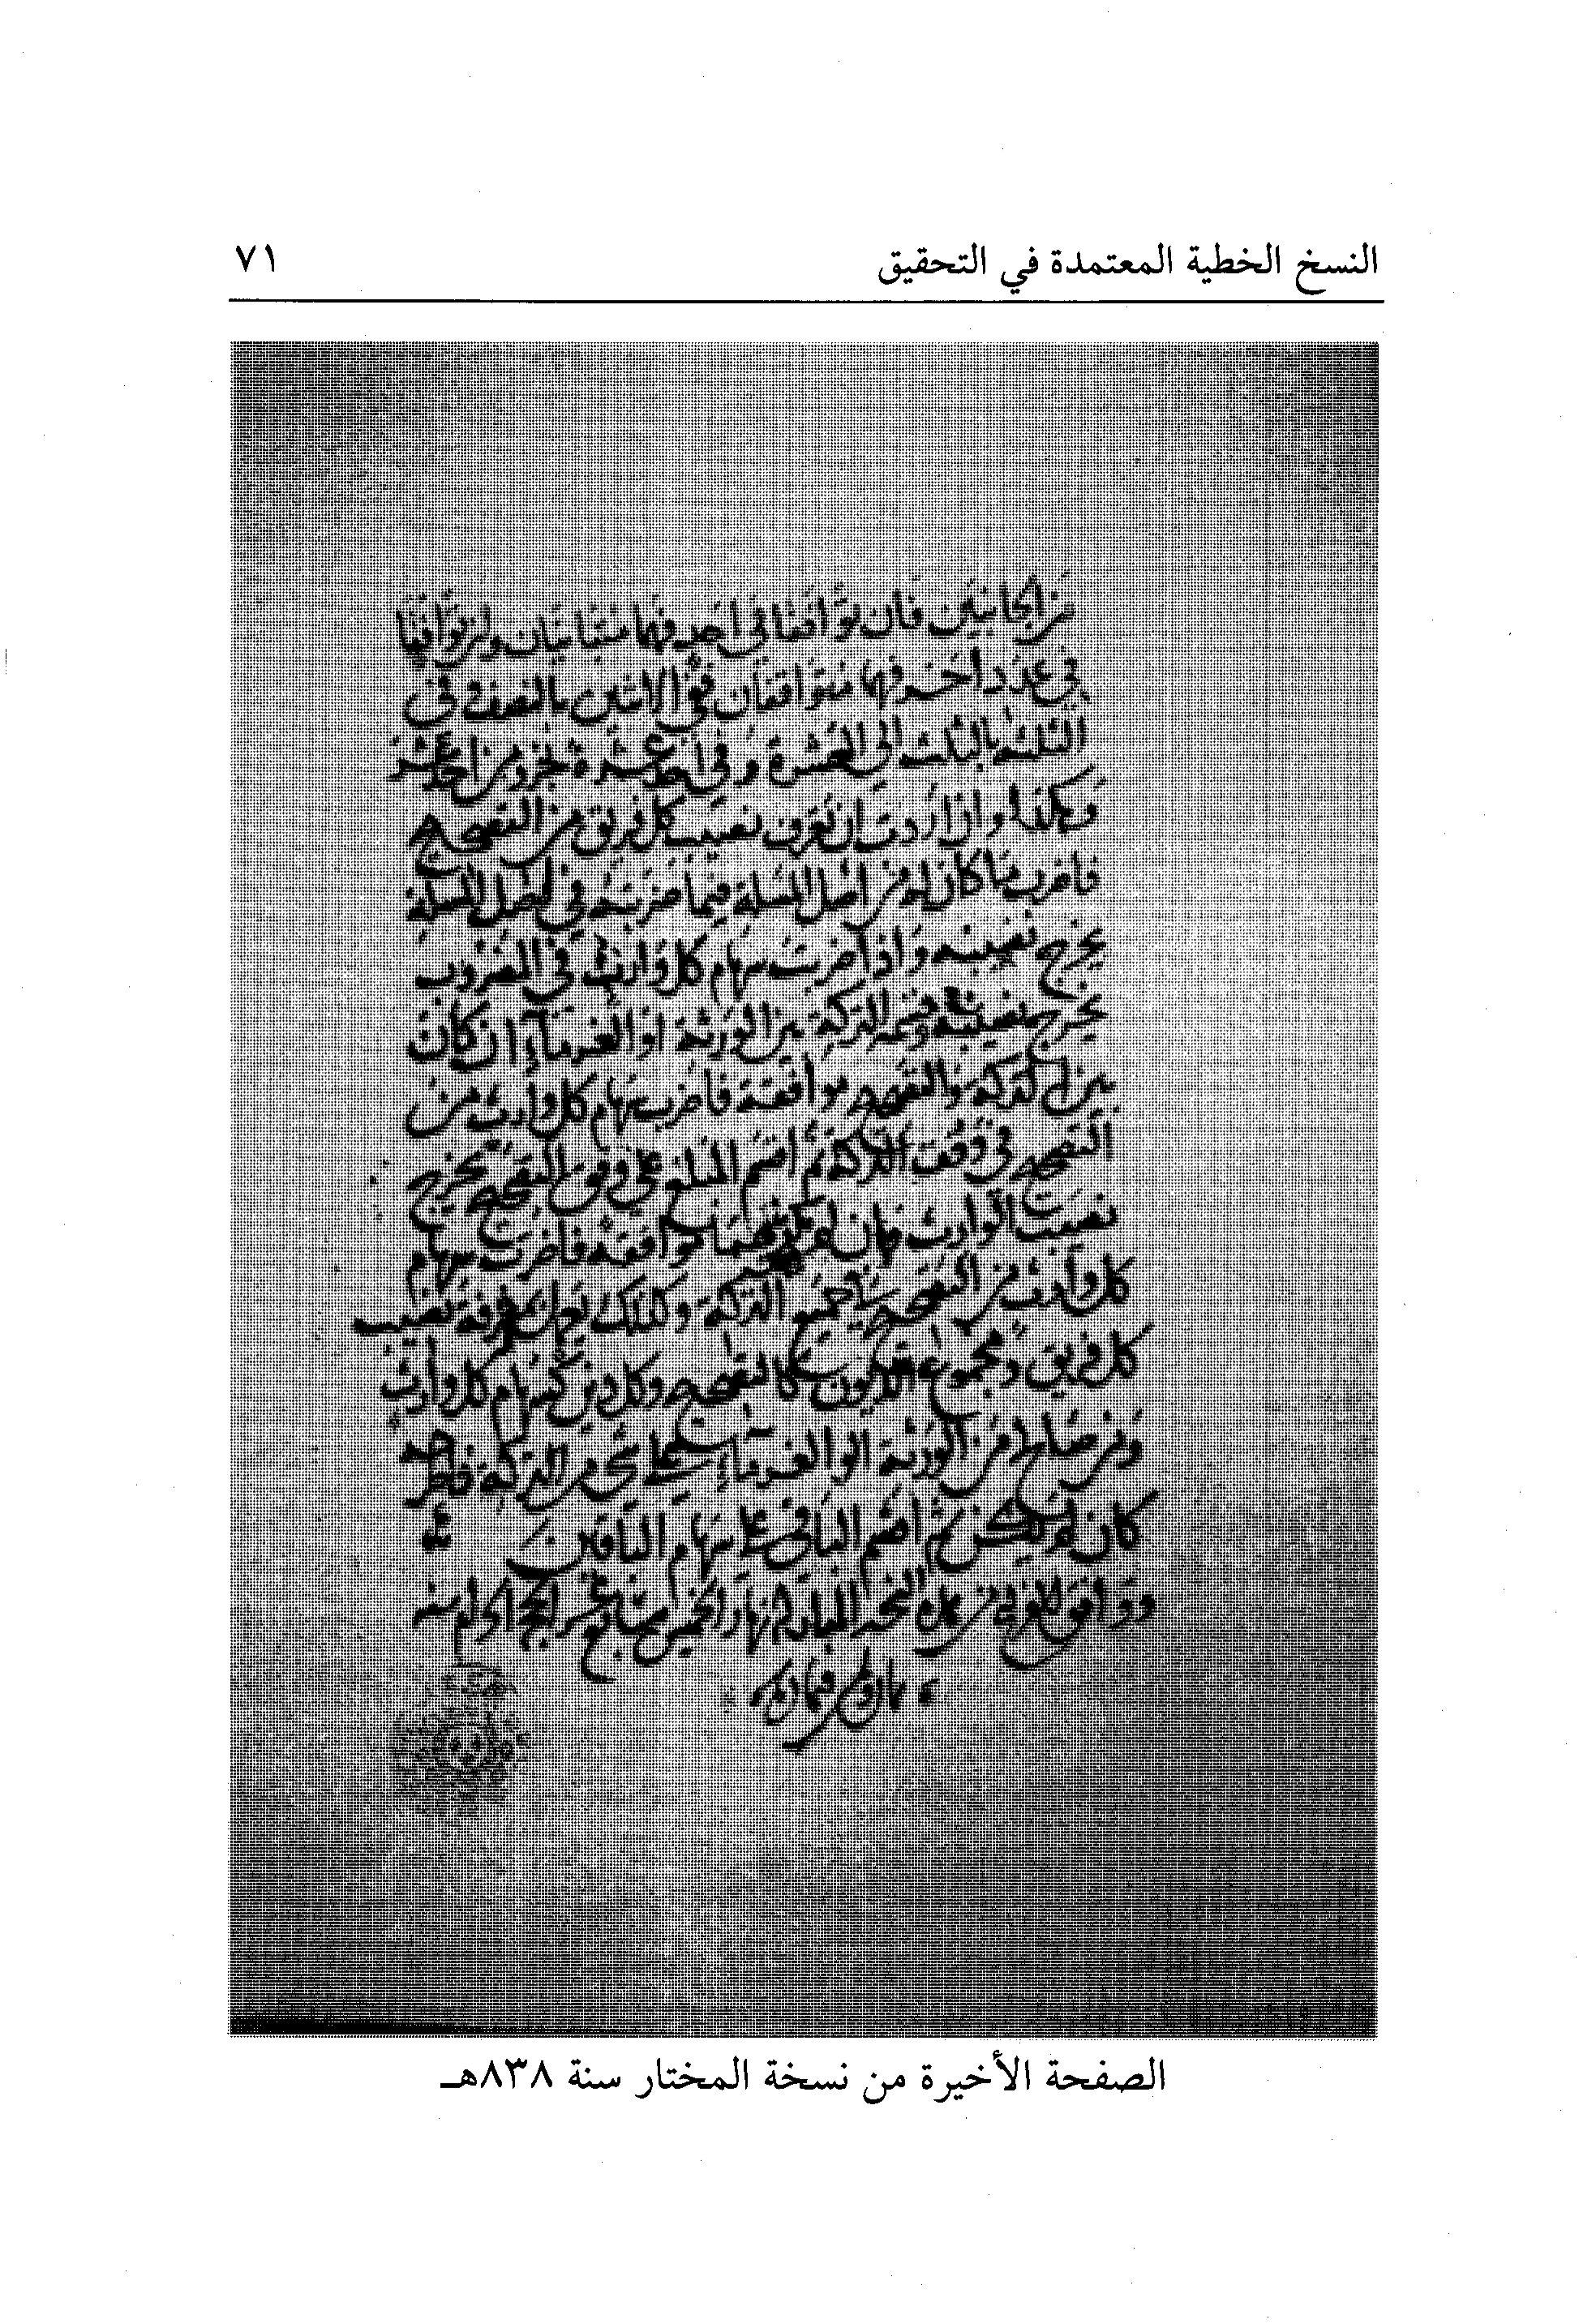 النسخ الخطية المعتمدة في التحقيق
٧١
من الجانبين فان توافقا في احد فهما متباينان وان توافقا
في عدد اخر فهما متوافقان ففي الاثنين بالنصف وفي
الثلثة بالثلث الى العشرة وفي احد عشرة بجزو من احد عشر
وهكذا واذا اردت ان تعرف نصيب كل فريق من التصحيح
فاضرب ما كان له من اصل المسلة فيما ضربته في اصل المسلة
يخرج نصيبه واذا ضربت سهام كل وارث في المضروب
يخرج نصيبه وقسمة التركة بين الورثة او الغرماء ان كان
بين التركة والتصحيح موافقة فاضرب سهام كل وارث من
التصحيح في وفق التركة ثم اقسم المبلغ على وفق التصحيح يخرج
نصيب الوارث فان لم يكن بينهما موافقة فاضرب سهام
كل وارث من التصحيح في جميع التركة وكذلك تعمل لمعرفة نصيب
كل فريق ومجموع الديون كالتصحيح وكل دين كسهام كل وارث
ومن صالح من الورثة او الغرماء على شي من التركة فاطرحه
كان لم يكن ثم اقسم الباقي على سهام الباقين
ووافق الفراغ من النسخة المباركة نهار الخميس سابع عشر
وثمانمائة
الصفحة الأخيرة من نسخة المختار سنة ٨٣٨هـ